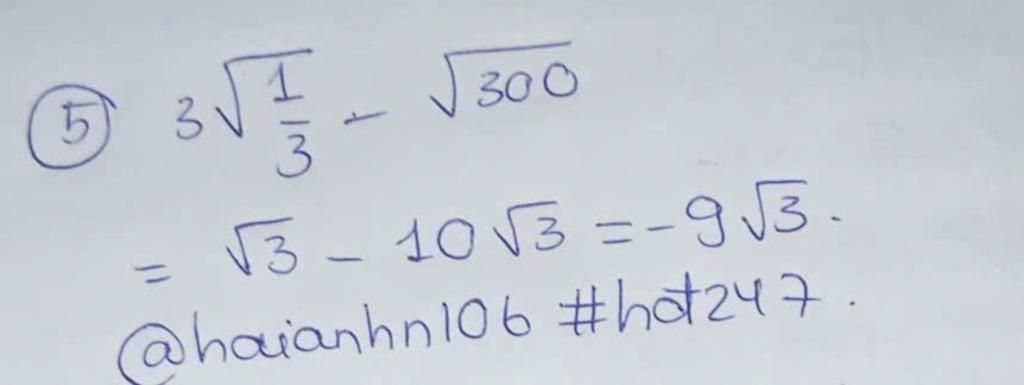 ⑤ 3√(1/3) - √300
= √3 - 10√3 = -9√3.
@haianhn106 #hot247.